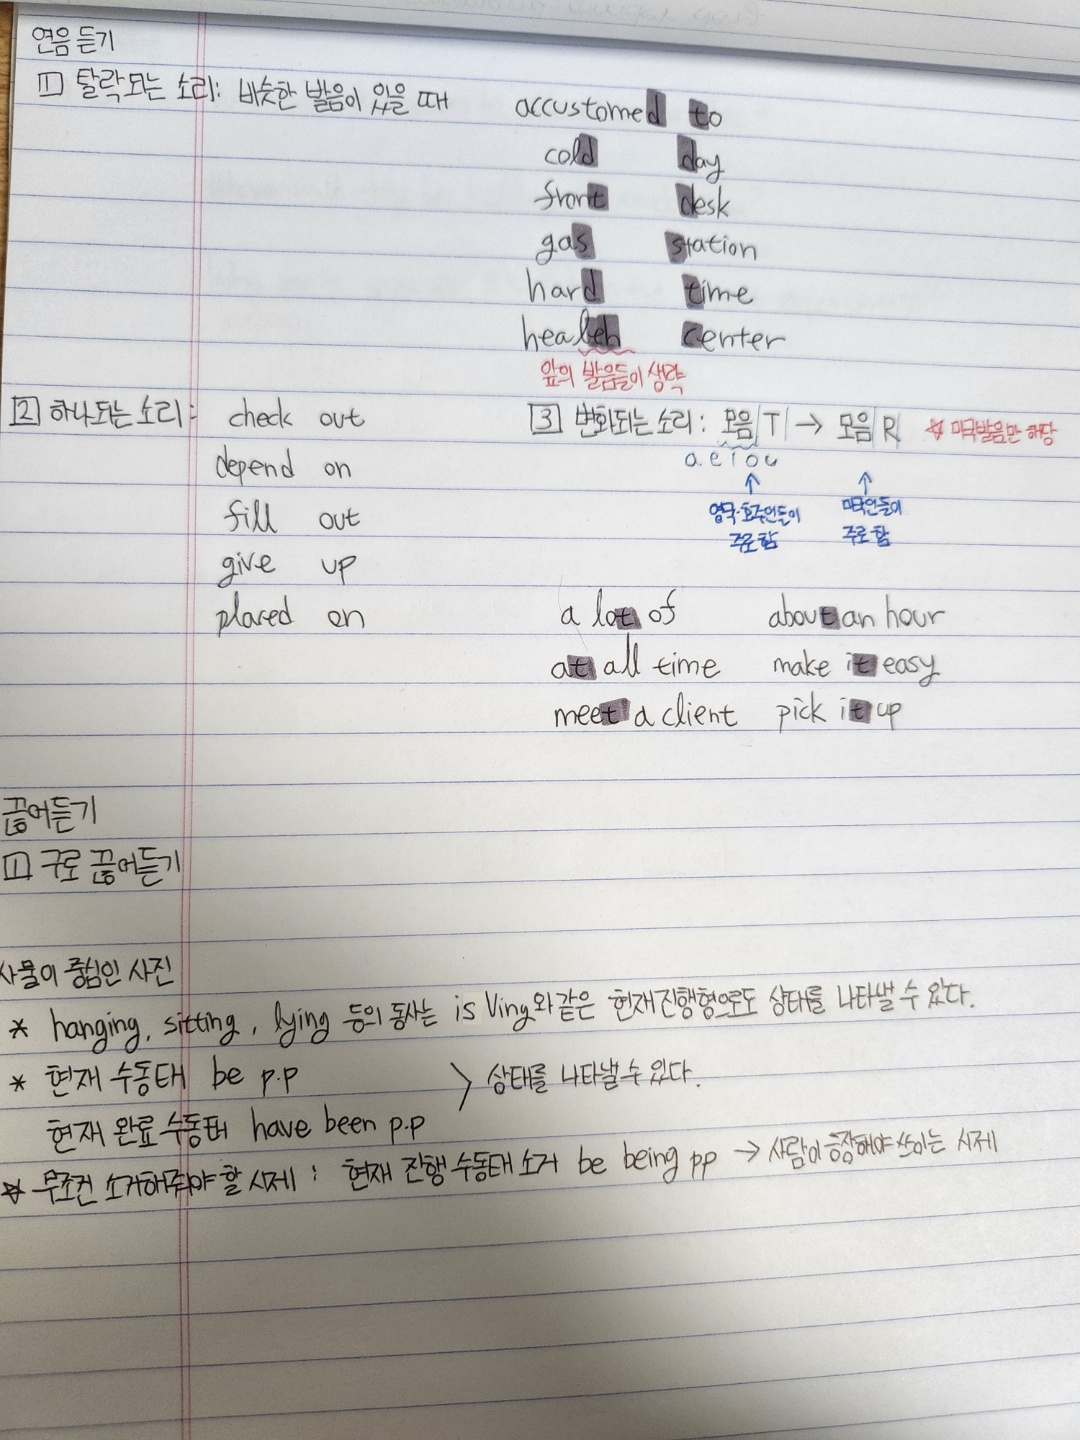 연음 듣기
1 탈락되는 소리: 비슷한 발음이 있을 때
accustomed to
cold day
front desk
gas station
hard time
health center
앞의 발음들이 생략
2 하나되는 소리: check out
depend on
fill out
give up
placed on
3 변화되는 소리: 모음 T → 모음 R ☆ 미국발음만 해당
a e i o u
↑ ↑
영국·호주인들이 주로 함
미국인들이 주로 함
a lot of about an hour
at all time make it easy
meet a client pick it up
끊어듣기
1 구로 끊어듣기
사물이 중심인 사진
* hanging, sitting, lying 등의 동사는 is Ving와 같은 현재진행형으로도 상태를 나타낼 수 있다.
* 현재 수동태 be p.p > 상태를 나타낼 수 있다.
현재 완료 수동태 have been p.p
☆ 무조건 소거해줘야 할 시제: 현재 진행 수동태 소거 be being pp → 사람이 등장해야 쓰이는 시제